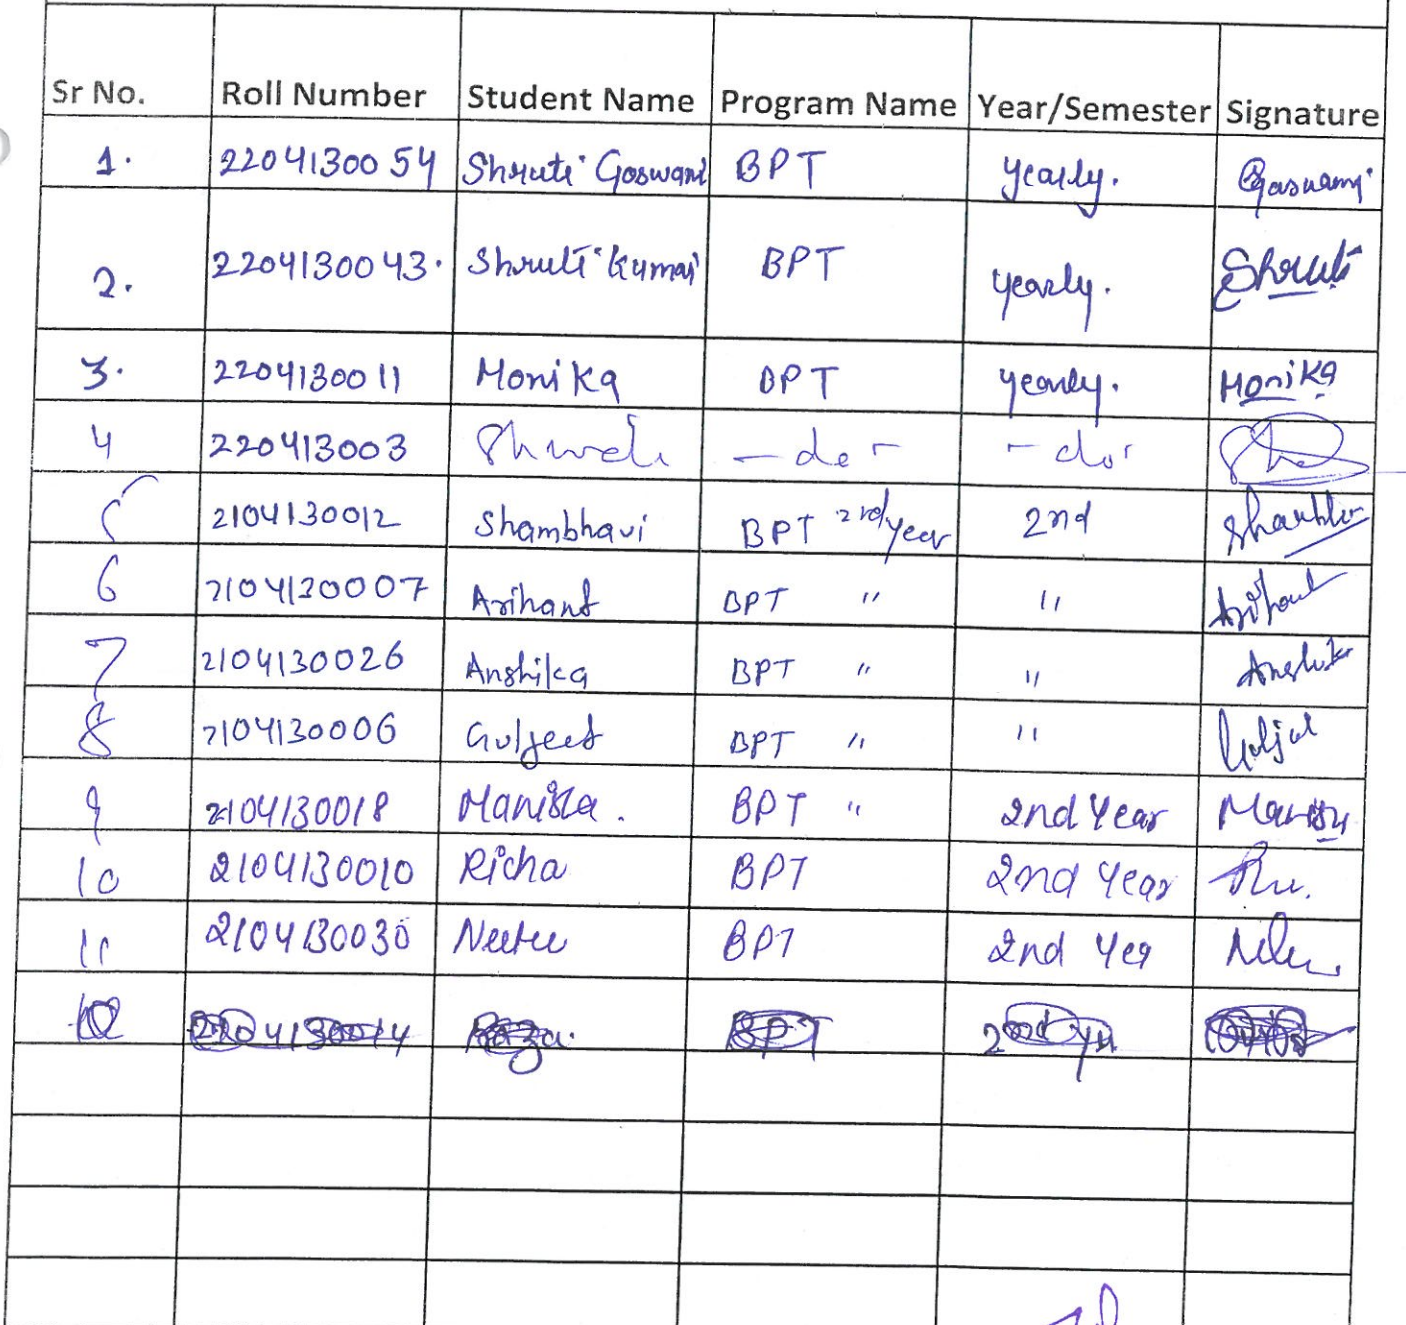 Sr No. Roll Number Student Name Program Name Year/Semester Signature
1. 2204130054 Shruti Goswami BPT yearly. Goswami
2. 2204130043. Shruti Kumari BPT yearly. Shruti
3. 2204130011 Monika BPT yearly. Monika
4 220413003 -do- -do-
5 2104130012 Shambhavi BPT 2nd year 2nd
6 2104130007 Arihant BPT " " Arihant
7 2104130026 Anshika BPT " "
8 2104130006 Guljeet BPT " "
9 2104130018 Manisha. BPT " 2nd Year
10 2104130010 Richa BPT 2nd Year
11 2104130030 Neetu BPT 2nd Yea
BPT